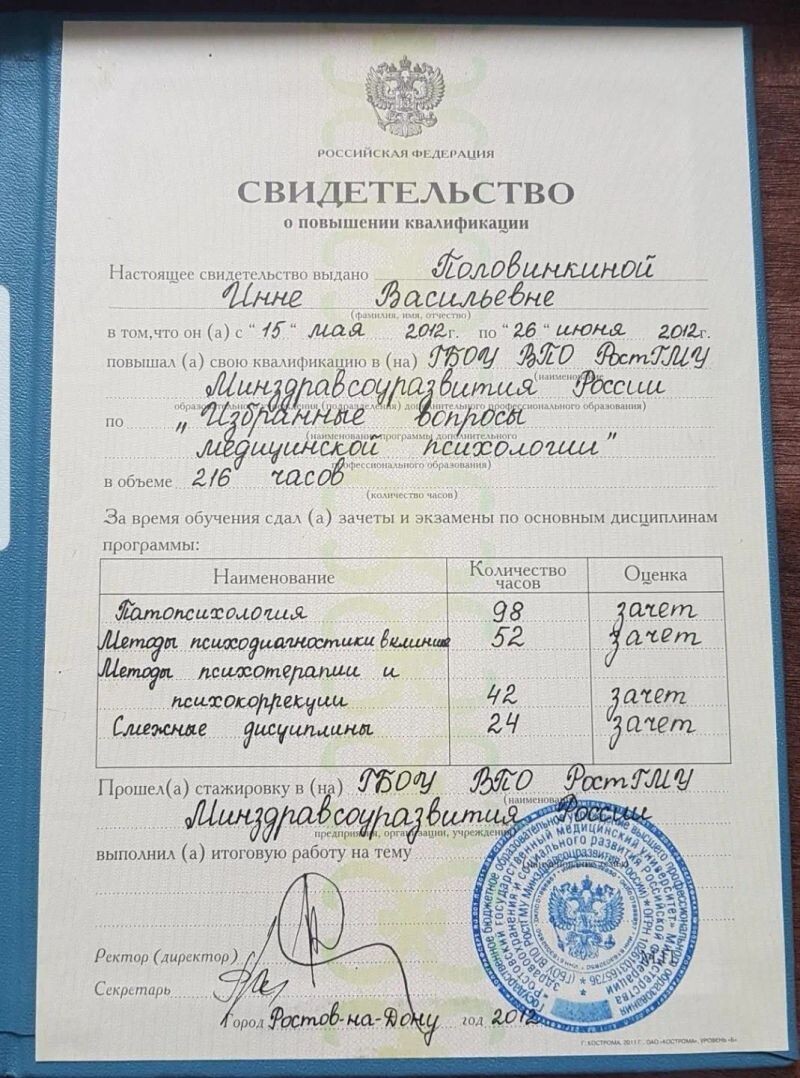 РОССИЙСКАЯ ФЕДЕРАЦИЯ
СВИДЕТЕЛЬСТВО
о повышении квалификации
Настоящее свидетельство выдано Половинкиной
Инне Васильевне
(фамилия, имя, отчество)
в том, что он (а) с "15" мая 2012г. по "26" июня 2012г.
повышал (а) свою квалификацию в (на) ГБОУ ВПО РостГМУ
(наименование
Минздравсоцразвития России
образовательного учреждения (подразделения) дополнительного профессионального образования)
по „Избранные вопросы
(наименование программы дополнительного
медицинской психологии"
профессионального образования)
в объеме 216 часов
(количество часов)
За время обучения сдал (а) зачеты и экзамены по основным дисциплинам
программы:
Наименование Количество часов Оценка
Патопсихология 98 зачет
Методы психодиагностики в клинике 52 зачет
Методы психотерапии и
психокоррекции 42 зачет
Смежные дисциплины 24 зачет
Прошел(а) стажировку в (на) ГБОУ ВПО РостГМУ
(наименование
Минздравсоцразвития России
предприятия, организации, учреждения)
выполнил (а) итоговую работу на тему
Ректор (директор)
М.П.
Секретарь
Город Ростов-на-Дону год 2012
Г. КОСТРОМА, 2011 Г., ОАО «КОСТРОМА», УРОВЕНЬ «Б»